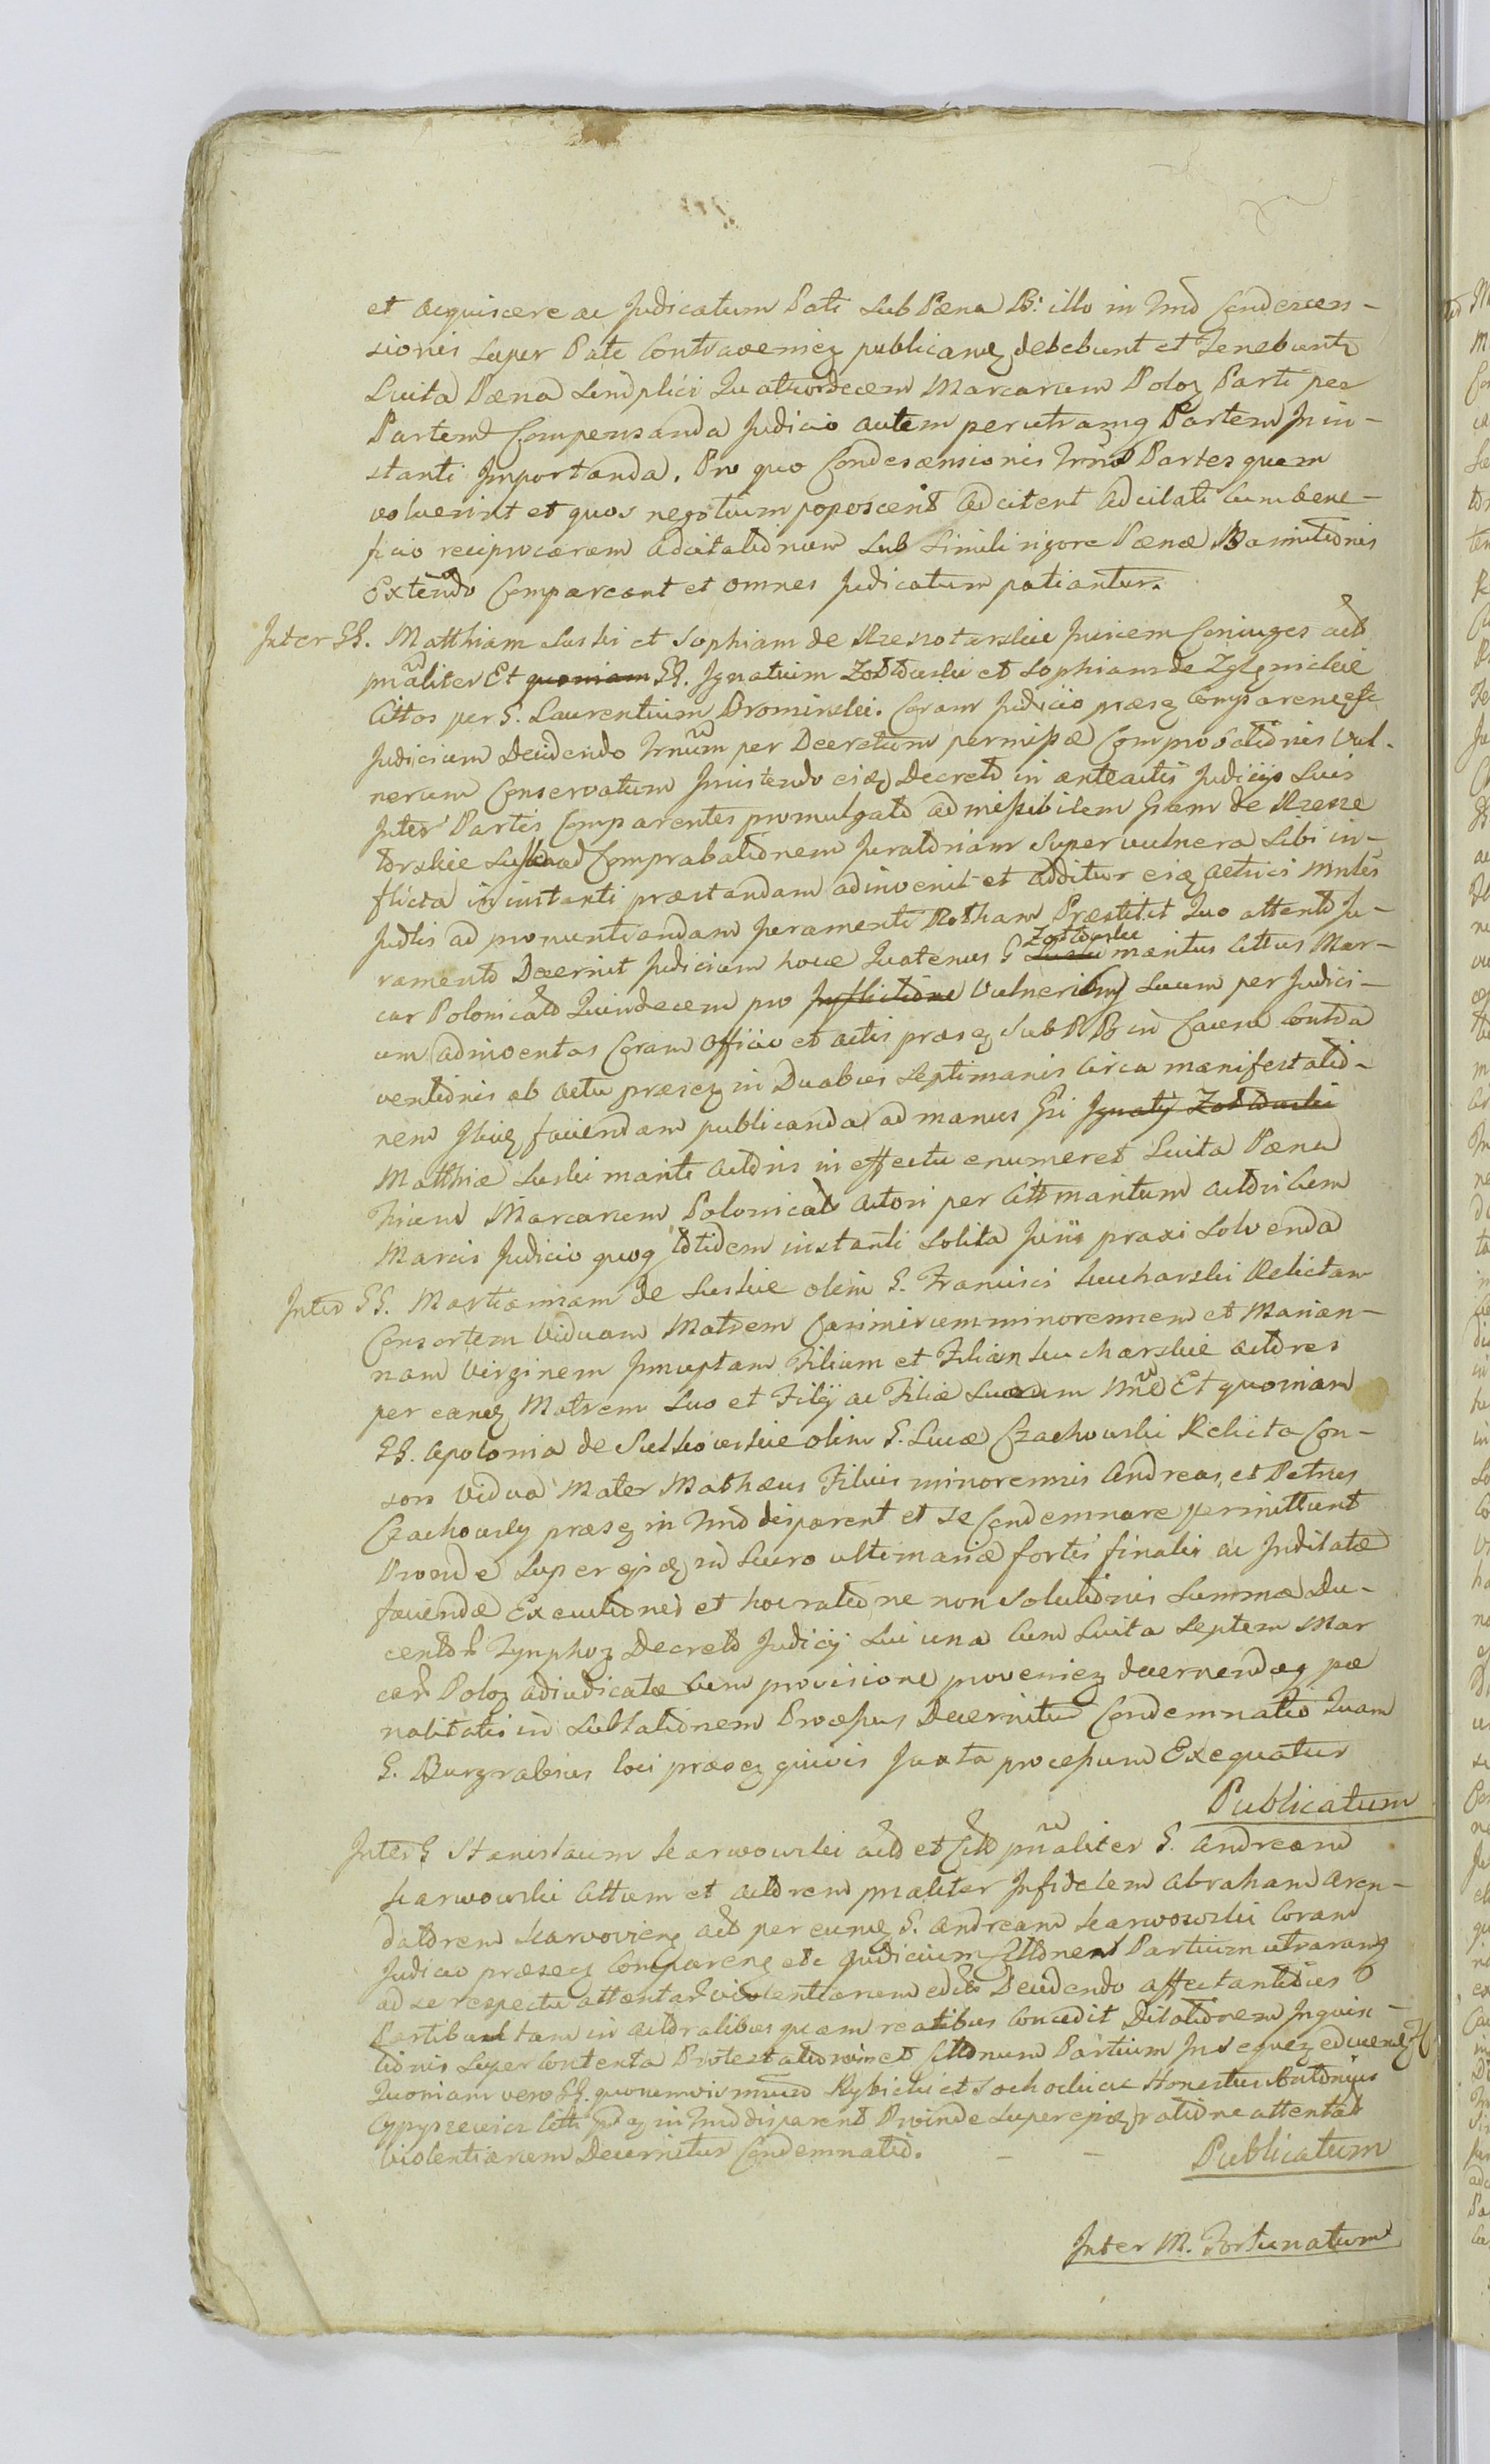 et acquiscere ac Judicatum Pati sub Pæna B: illo in Tnō Condescen-
sionis super Pate Contraveniez publicanz debebunt et Tenebunt
Luita Pæna Simplici Quatuordecem Marcarum Poloz Parti per
Partem Compensanda Judicio autem per utramq Partem In in-
stanti Importanda. Pro quo Condescensionis Trno Partes quem
voluerint et quos negotium poposcerit adcitent adcitati Cum bene-
ficio reciprocarum adcitationum sub simili rigore Pænæ Bannitionis
Extendo Compareant et omnes Judicatum patiantur.
Inter GG. Matthiam Suski et Sophiam de Rzeszotarskie Juriem Coniuges act
pnāliter Et quoniam GG. Ignatium Zołtowski et Sophiam de Zglenickie
Cittos per G. Laurentium Brominski. Coram Judicio præsez Comparenc etc
Judicium Decidendo Trnum per Decretum permissæ Comprobationis Vul-
nerum Conservatum Insistendo eidz Decreto in anteactis Judicijs suis
Inter Partes Comparentes promulgato admissibilem Gsam de Rzeszo
torskie Suska ad Comprabationem Juratoriam super vulnera sibi in-
flicta in instanti præstandam adinvenit et additur eidz actrici Mnlis
Judlis ad pronuntiandam Juramenti Rotham Præstitit Quo attento Ju-
ramento Decernit Judicium hocce Quatenus G Zołtowski maritus Cittus Mar-
cas Polonicals Quindecem pro Inflictione Vulneribuz suum per Judici-
um adinventas Coram Officio et actis præsez sub P B in Causa Contra
ventionis ab actu præsez in Duabus Septimanis Circa manifestatio-
nem Gliuz faciendam publicanda ad manus Gsi Ignatij Zołtowski
Matthiæ Suski mariti actoris in effectu enumeret Luita Pæna
Trium Marcarum Polonical Actori per Citt maritum actori Cum
Marcis Judicio quoq totidem instanti solita Juris praxi solvenda
Inter GG. Martiannam de Suskie olim G. Francisci Kucharski Relictam
Consortem Viduam Matrem Casimirum minorennem et Marian-
nam Virginem Innuptam Filium et Filiam Kucharskie actores
per eanz Matrem suo et Filij ac Filiæ suorum Nnē Et quoniam
GG. Apolonia de Sutkowskie olim G. Lucæ Czachowski Relicta Con-
sors Vidua Mater Mathæus Filius minorennis Andreas et Petrus
Czachowsky præsez in Tnō disparent et se Condemnare permittunt
Proinde super ejsdz in Lucro ultimariæ fortis finalis ac Inditatæ
faciendæ Executionis et hoc ratione non Solutionis Summæ Du-
centor Tynphoz Decreto Judicij sui una Cum Luita Septem Mar
car Poloz adiudicatæ Cum provisione proveniez decernendæq pæ
nalitatis in Subsationem Processus Decernitur Condemnatio Quam
G. Burgrabius loci præsez quivis Juxta processum Exequatur
Publicatum
Inter G Stanislaum Karwowski act et Citt pnāliter G. Andream
Karwowski Cittum et actorem pnaliter Infidelem Abraham Aren-
datorem Karwovienz act per eunz G. Andream Karwowski Coram
Judicio præsez Comparenz etc Judicium Cittonem Partium utrarumq
ad se respectu attentar violentiarum edit Decidendo affectantibus
Partibus tam in actoralibus quam reatibus Concedit Dilationem Inquisi-
tionis super Contenta Protestationum et Cittonum Partium Insequez educenz
Quoniam vero GG. quorumvis mnūm Rybicki et Sochocki ac Honestus Antonius
Cypyszewicz Citti pdez in Tnō disparent Proinde super epsdz ratione attentat
violentiarum Decernitur Condemnatio. - -
Publicatum
Inter M. Fortunatum